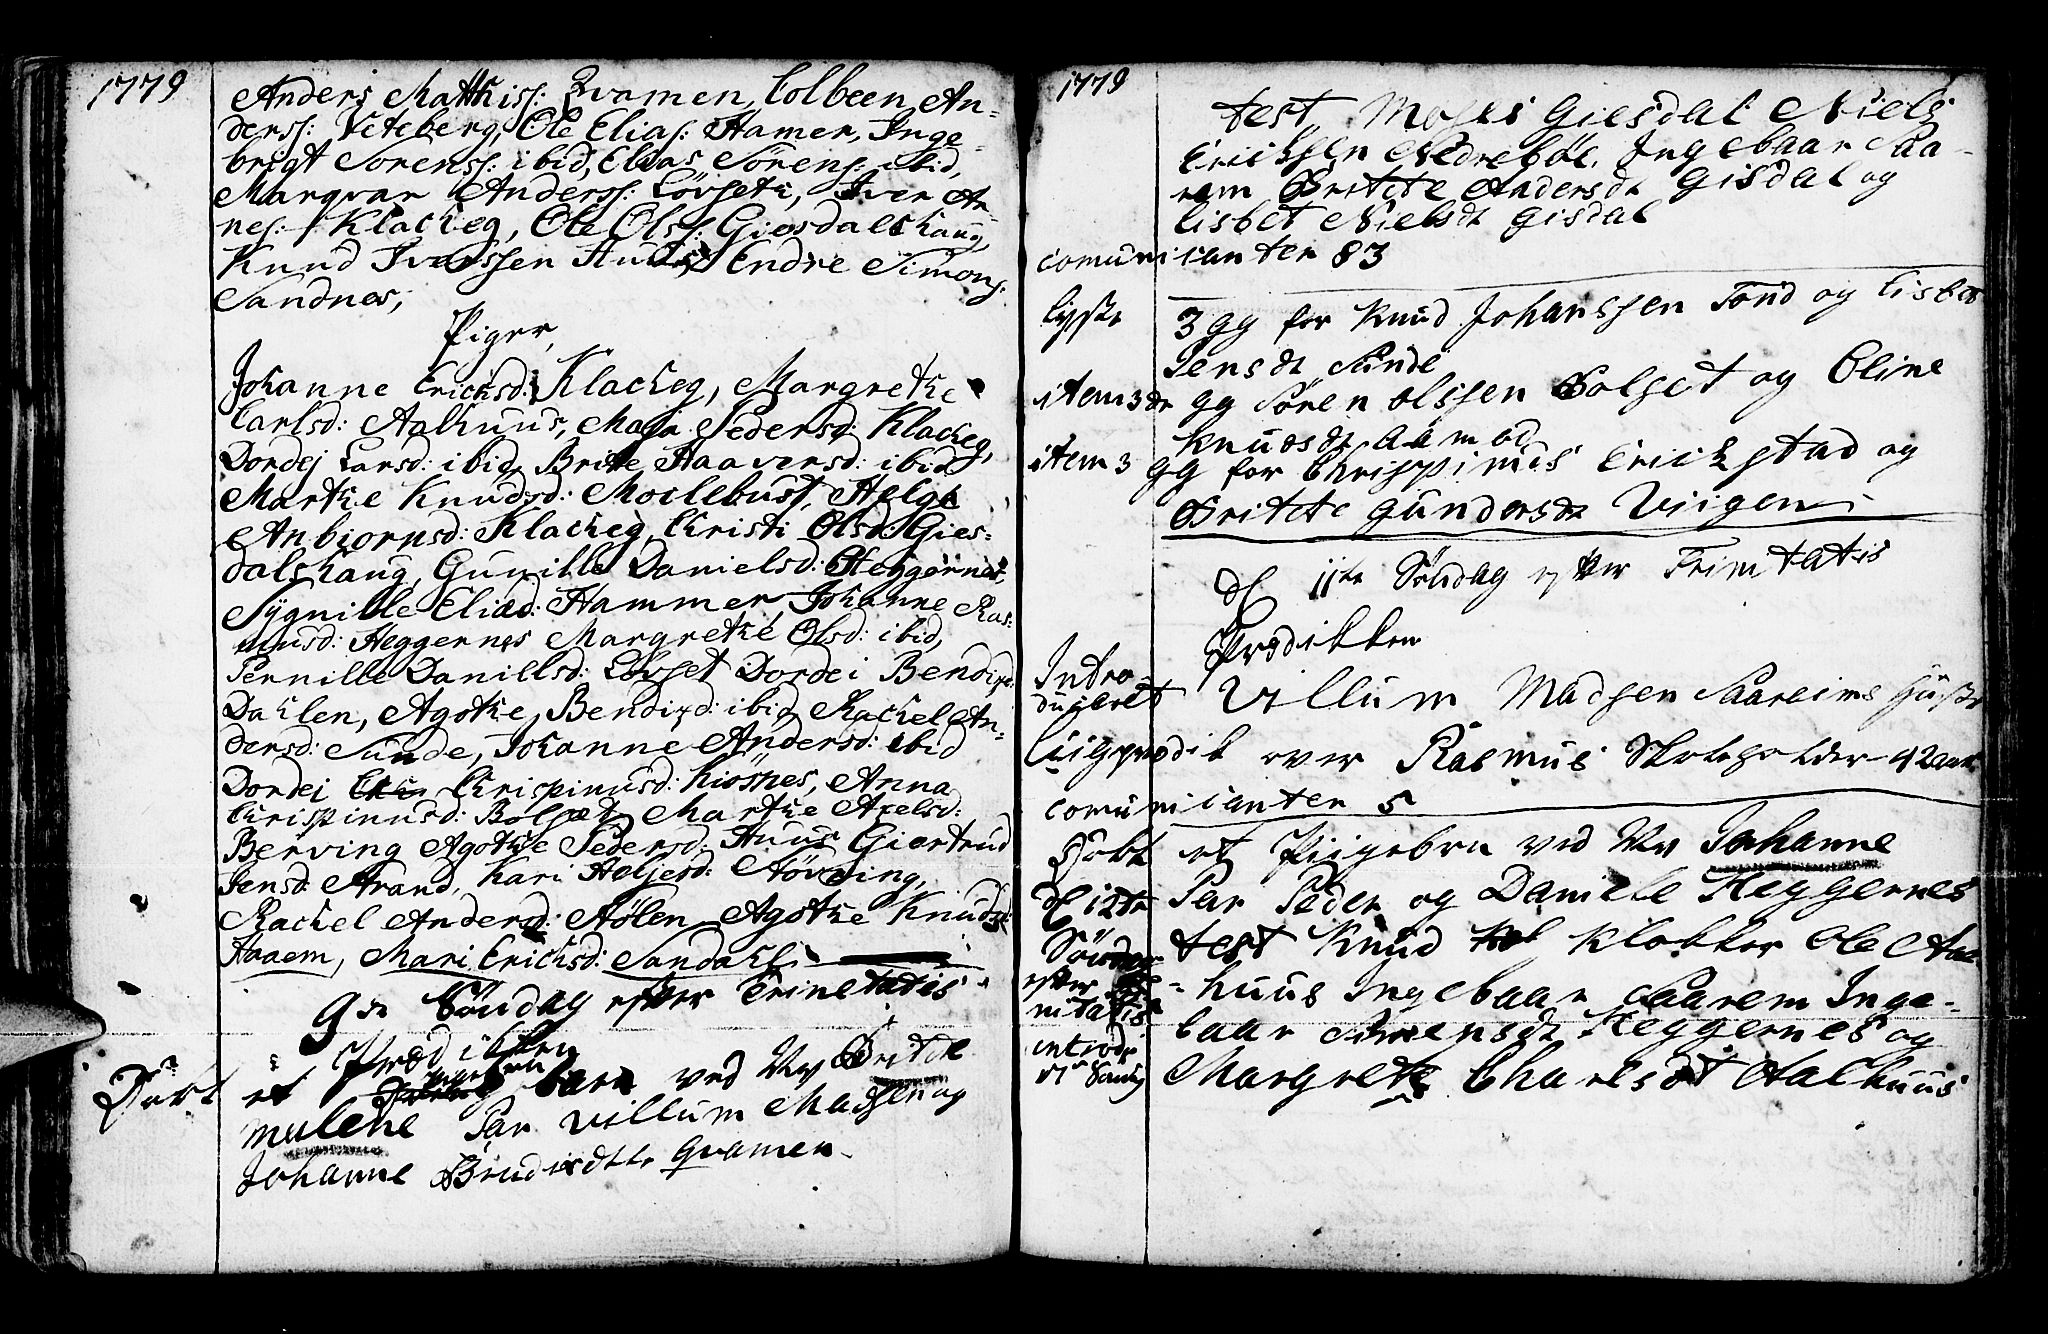 1779
Anders Matthiss: Qvamen, Colbeen An-
derss: Viteberg, Ole Elias: Hamer, Inge-
brigt Sorenss: ibid, Elias Sörens: ibid,
Marqvar Anderss: Lövseth, Iver Ar-
nes: Klackeg, Ole Olss: Giesdalshaug,
Knud Iverssen Huus, Endre Simons:
Sandnes,
Piger,
Johanne Ericksd: Klackeg, Margrethe
Carlsd: Aalhuus, Mari Pedersd: Klackeg,
Dordej Larsd: ibid, Brite Haaversd: ibid
Marthe Knudsd: Moclebust, Helge
Anbiornsd: Klackeg, Christi Olsd: Gies-
dalshaug, Gunille Danielsd: Heggernes,
Sygnille Eliæd: Hammer, Johanne Ras-
musd: Heggernes Margrethe Olsd: ibid,
Pernille Danillsd: Lövset Dordei Bendixd:
Dahlen, Agothe Bendixd: ibid, Rachel An-
dersd: Sunde, Johanne Andersd: ibid
Dordej Chrispinusd: Kiösnes, Anna
Chrispinusd: Bolset, Marthe Axelsd:
Berving Agothe Pedersd: Huus Giertrud
Jensd: Strand, Kari Heljesd: Növsing,
Rachel Andersd: Hölen, Agothe Knudsd:
Haaem, Mari Ericksd: Sandahl
9de Söndag efter Trinetatis
Prædikken
Döbt et pigebarn barn ved Nv Britthe
mulene Par Villum Madsen og
Johanne Qvamen
1779
test, Moses Giesdal Niels
Ericksen Nedreböe, Ingebaar Saa-
rem Britete Andersdt Gisdal og
Lisbet Nielsdt Gisdal
comunicanter 83
lyste 3 gg for Knud Johanssen Tond og Lisbet
Jensdt Sunde
item 3de gg Sören olssen Bolset og Oline
Knudsdt Aamod
item 3 gg for Chrispinus Erickstad og
Britete Gundersdt Viigen
d 11te Söndag efter Trinitatis
Prædikken
Intro-
duceret Villum Madsen Saareims Hustr
Liigprædik over Rasmus 42 aar
comunicanter 5
Döbt et Piigebrn ved Nv Johanne
d 12te Par Peder og Daniele Heggernes
Söndag test Knud Klokker Ole Aal-
efter Tri- huus Ingebaar Saarem Inge-
nitatis baar Heggernes og
introd: Margrete Charlsdt Aalhuus